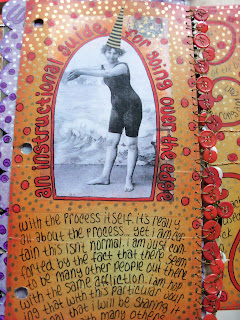 an instructional guide for going over the edge
with the process itself. Its really
all about the process... yet I am cer-
tain this isn't normal. I am just com-
forted by the fact that there seem
to be many other people out there
with the same affliction. I am hop-
ing that with this particular jour-
nal that I will be sharing it
many others